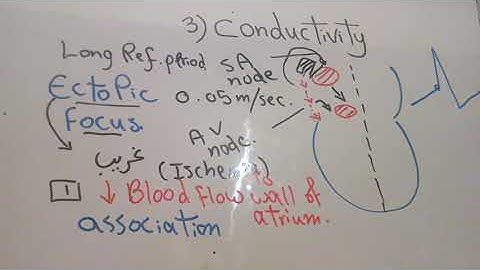 3) Conductivity
Long Ref. period SA node
Ectopic 0.05m/sec.
Focus. AV node.
غريب (Ischemia)
1 ↓ Blood flow wall of atrium.
association